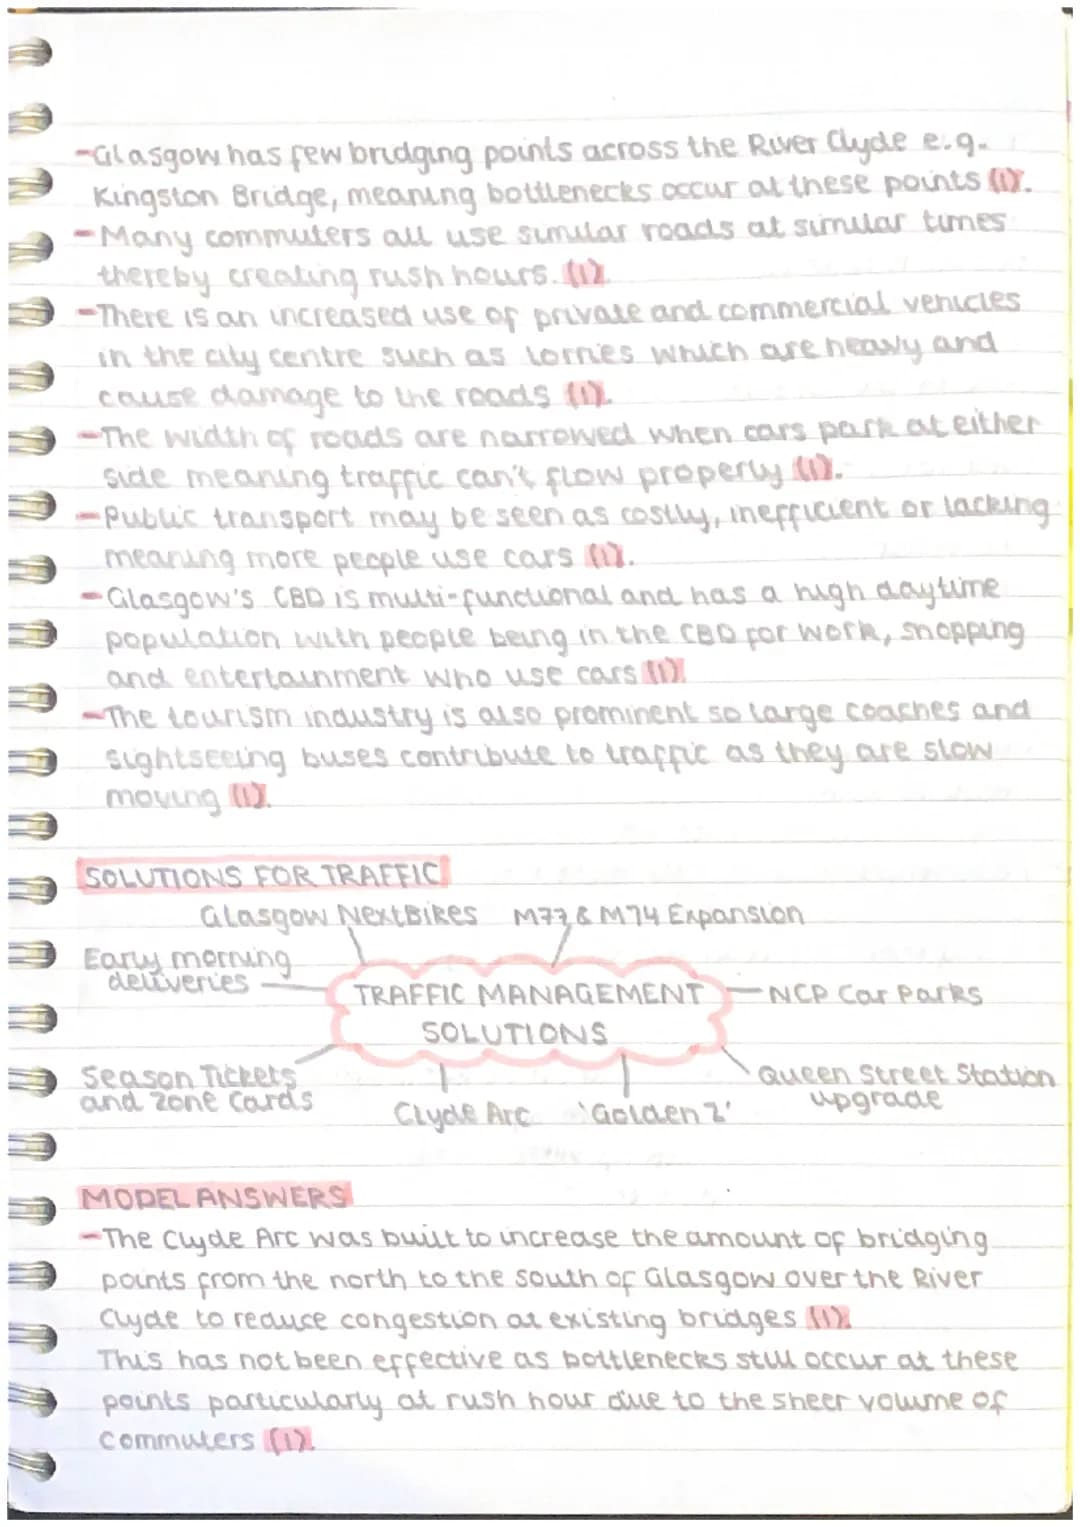 -Glasgow has few bridging points across the River Clyde e.g.
Kingston Bridge, meaning bottlenecks occur at these points (1).
-Many commuters all use similar roads at similar times
thereby creating rush hours. (1)
-There is an increased use of private and commercial vehicles
in the city centre such as lorries which are heavy and
cause damage to the roads (1).
-The width of roads are narrowed when cars park at either
side meaning traffic can't flow properly (1).
-Public transport may be seen as costly, inefficient or lacking
meaning more people use cars (1).
-Glasgow's CBD is multi-functional and has a high daytime
population with people being in the CBD for work, shopping
and entertainment who use cars (1)
-The tourism industry is also prominent so large coaches and
sightseeing buses contribute to traffic as they are slow
moving (1).
SOLUTIONS FOR TRAFFIC
Glasgow NextBikes M77 & M74 Expansion
Early morning
deliveries
TRAFFIC MANAGEMENT
SOLUTIONS
NCP Car Parks
Season Tickets
and Zone Cards
Clyde Arc 'Golden Z'
Queen Street Station
upgrade
MODEL ANSWERS
-The Clyde Arc was built to increase the amount of bridging
points from the north to the south of Glasgow over the River
Clyde to reduce congestion at existing bridges (1).
This has not been effective as bottlenecks still occur at these
points particularly at rush hour due to the sheer volume of
commuters (1).